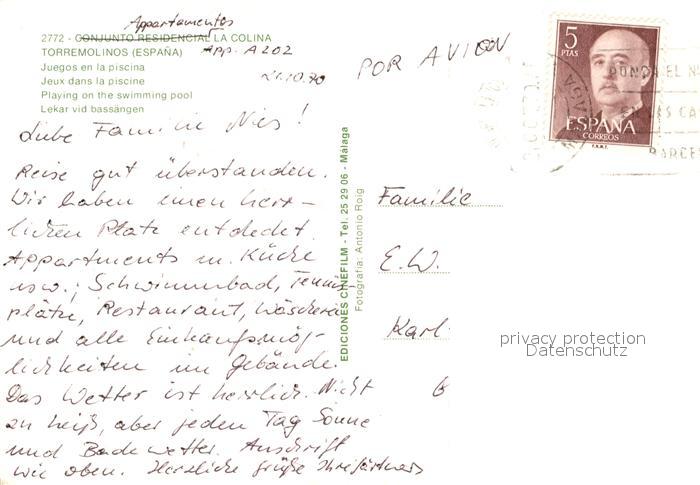 Appartamentos
2772 - CONJUNTO RESIDENCIAL LA COLINA
TORREMOLINOS (ESPAÑA) APP. A202
Juegos en la piscina
Jeux dans la piscine
Playing on the swimming pool
Lekar vid bassängen
21.10.70
POR AVION
Liebe Familie Nies!
Reise gut überstanden.
Wir haben einen herr-
lichen Platz entdeckt.
Appartments m. Küche
usw.; Schwimmbad, Tennis-
plätze, Restaurant, Wäscherei
und alle Einkaufsmög-
lichkeiten im Gebäude.
Das Wetter ist herrlich. Nicht
zu heiß, aber jeden Tag Sonne
und Badewetter. Anschrift
wie oben. Herzliche Grüße Ihre
EDICIONES CINEFILM - Tel. 25 29 06 - Málaga
Fotografía: Antonio Roig
5
PTAS
ESPAÑA
CORREOS
F.N.M.T.
PONGA EL N
EN LAS CA
BARCE
Familie
E.W.
Karl-
privacy protection
Datenschutz